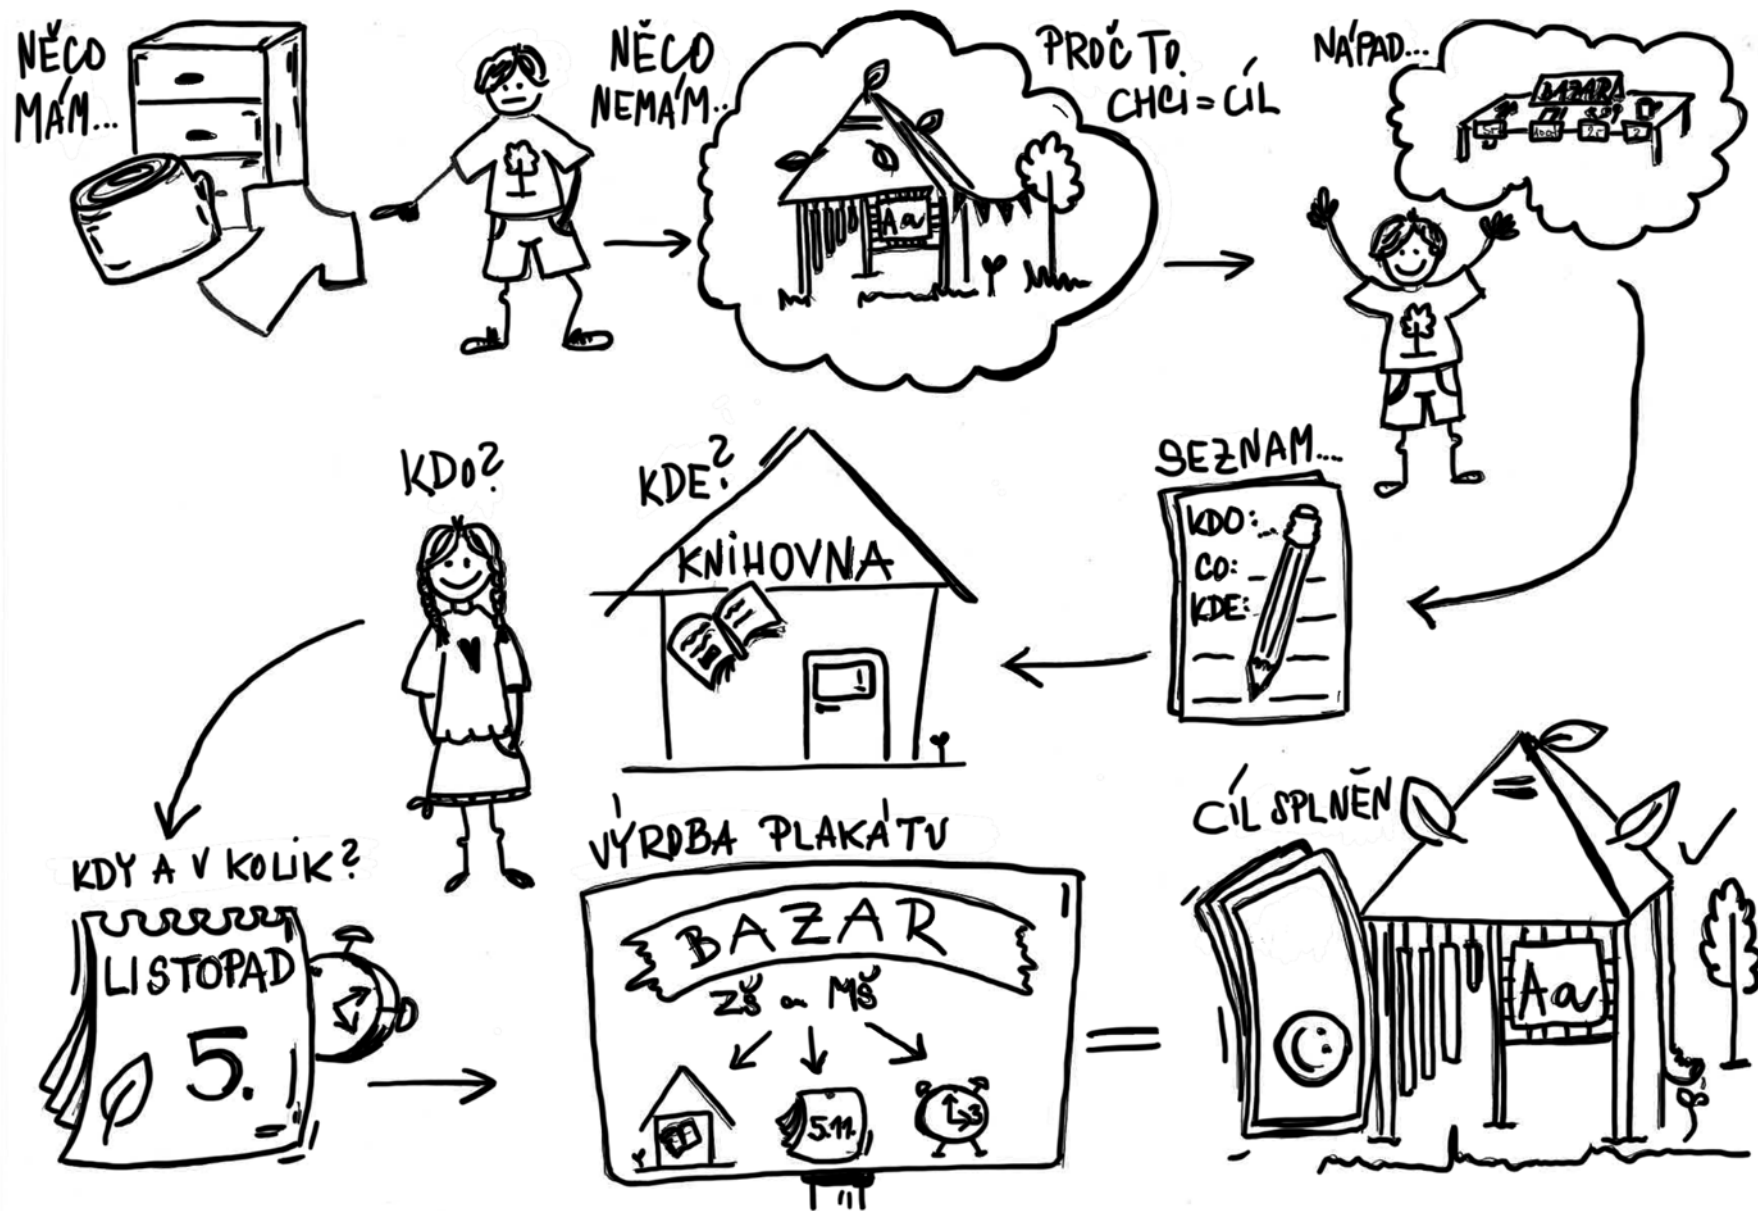 NĚCO
MÁM...
NĚCO
NEMÁM...
Aa
PROČ TO
CHCI = CÍL
NÁPAD...
BAZAR
SEZNAM...
KDO:...
CO:
KDE:
KDE?
KNIHOVNA
KDO?
KDY A V KOLIK?
LISTOPAD
5.
VÝROBA PLAKÁTU
BAZAR
ZŠ a MŠ
5.11.
3
=
CÍL SPLNĚN
Aa